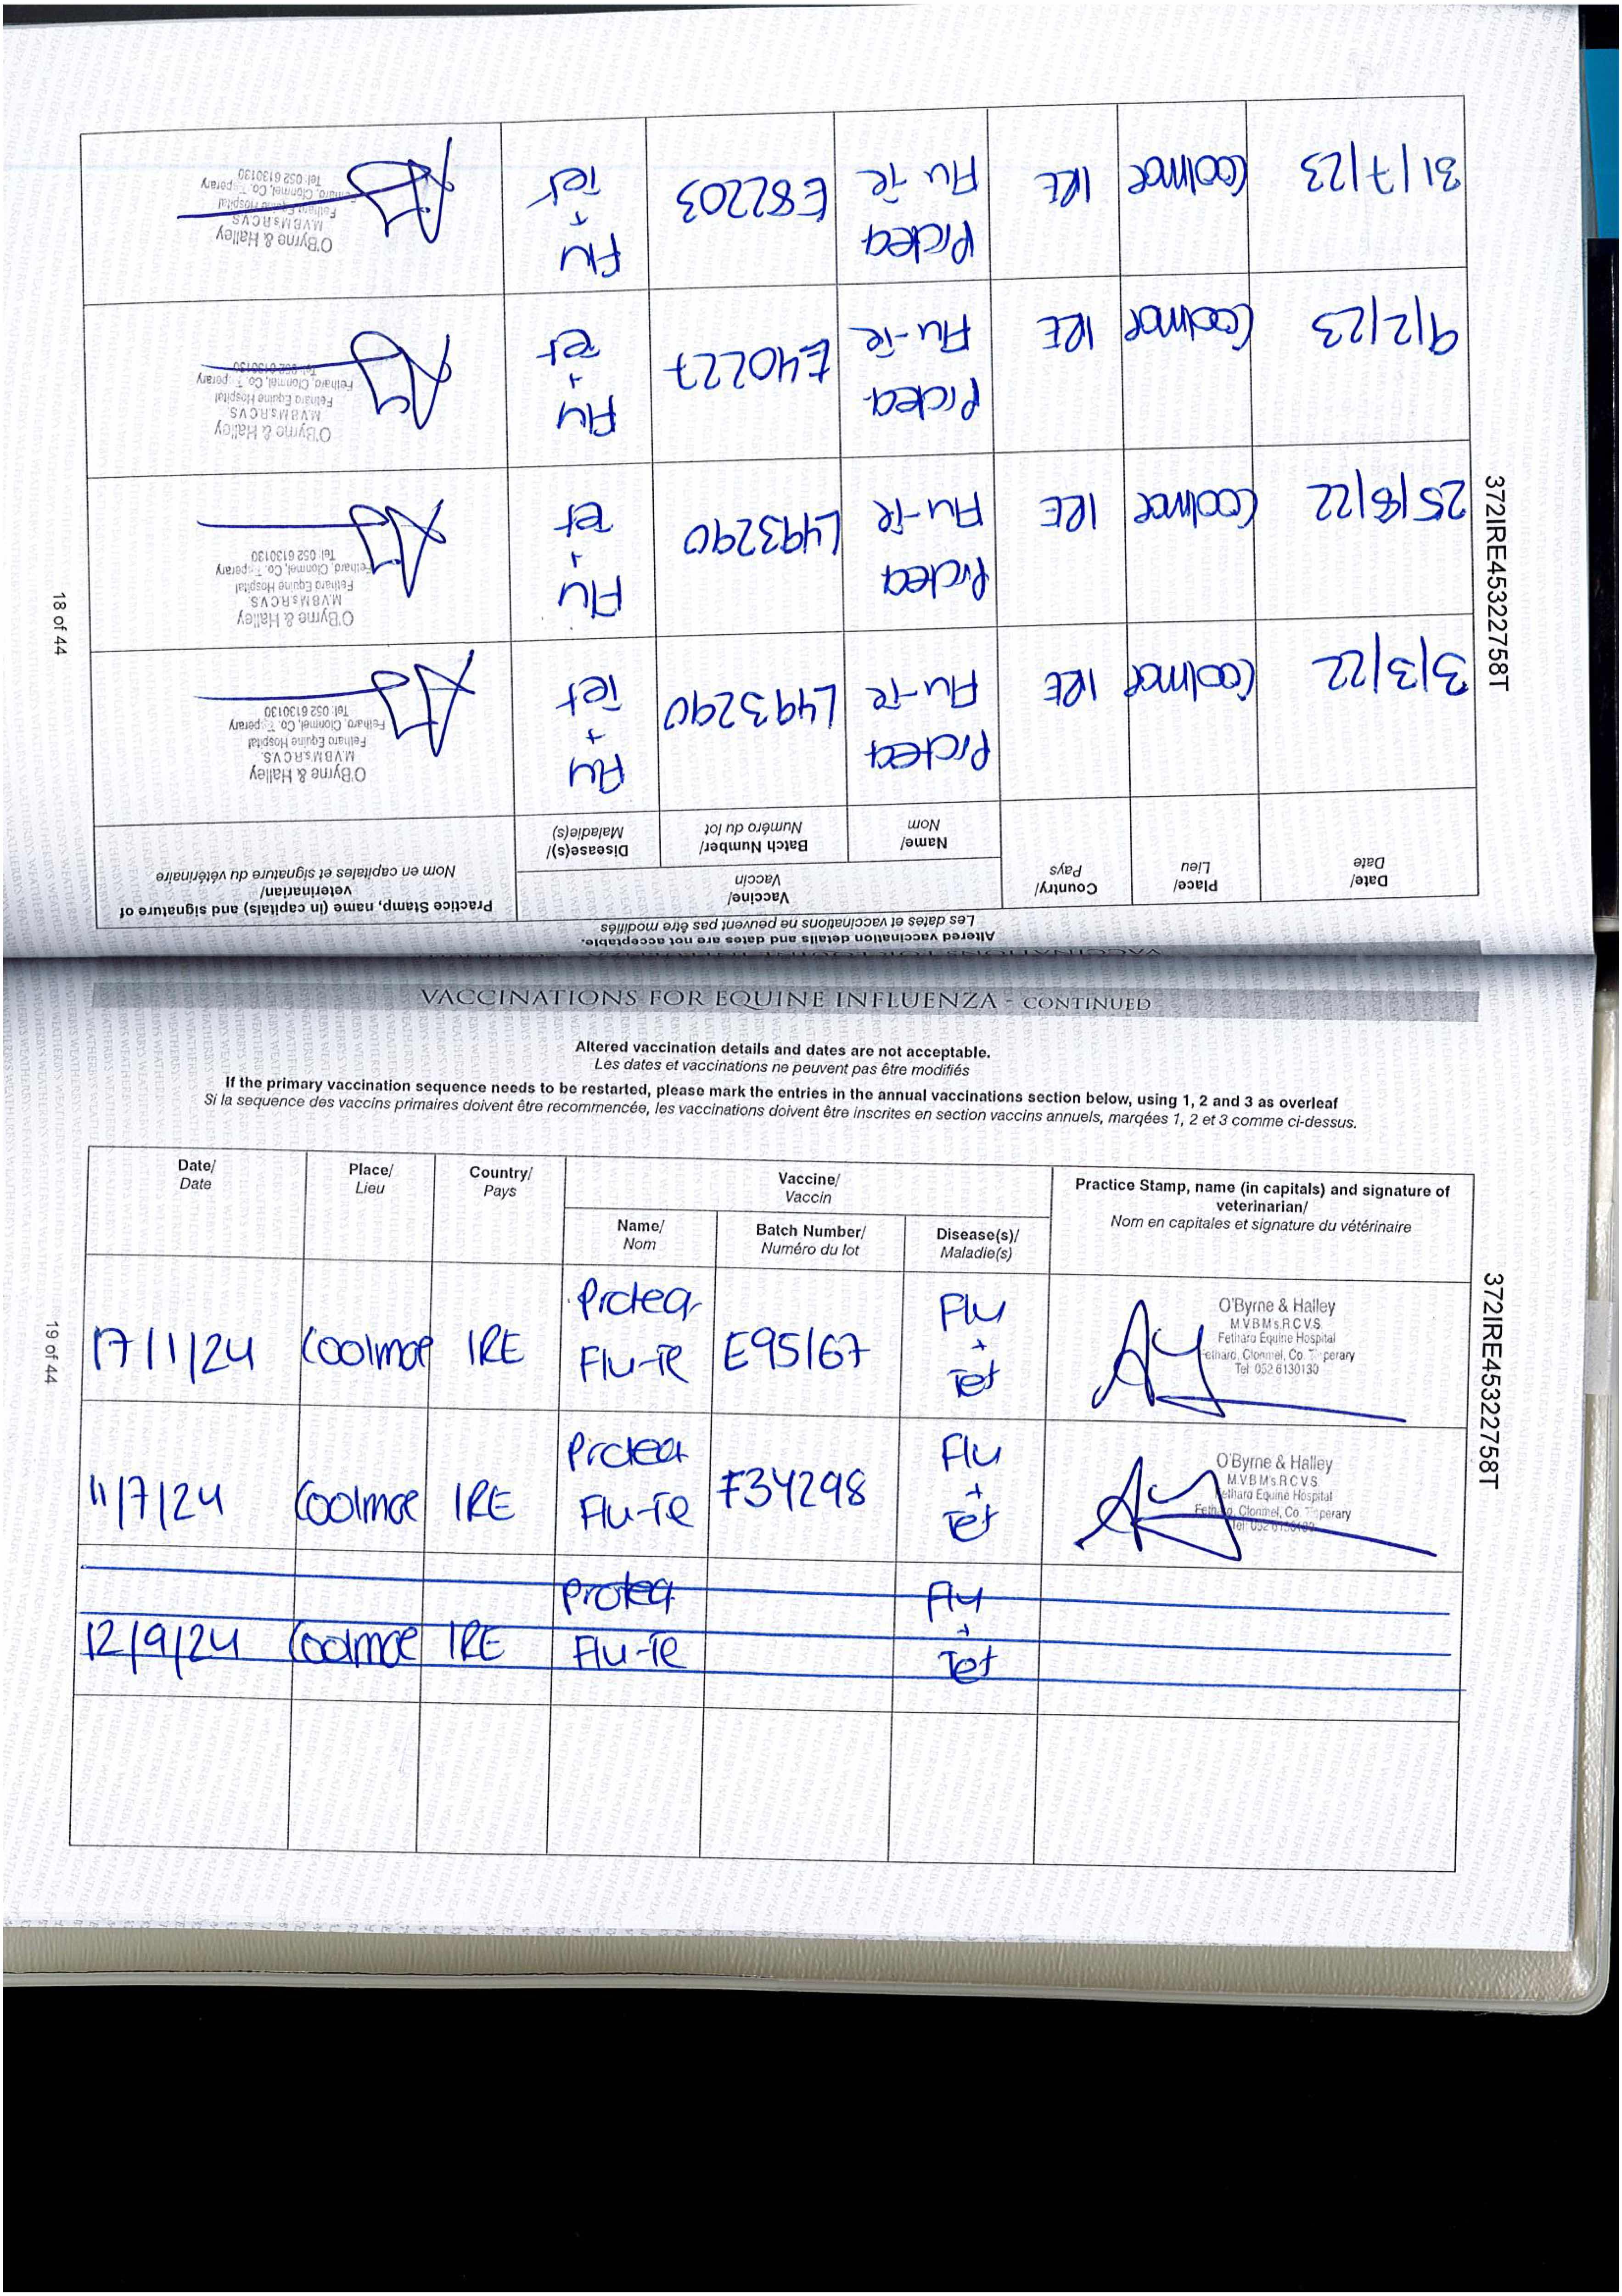 Altered vaccination details and dates are not acceptable.
Les dates et vaccinations ne peuvent pas être modifiés
Date/
Date
Place/
Lieu
Country/
Pays
Vaccine/
Vaccin
Name/
Nom
Batch Number/
Numéro du lot
Disease(s)/
Maladie(s)
Practice Stamp, name (in capitals) and signature of
veterinarian/
Nom en capitales et signature du vétérinaire
3/3/22
Coolmore
IRE
Protea
Flu-Te
L493290
Flu
+
Tet
O'Byrne & Halley
M.V.B M's.R.C.V.S.
Fethard Equine Hospital
Fethard, Clonmel, Co. T perary
Tel: 052 6130130
25/8/22
Coolmore
IRE
Protea
Flu-Te
L493290
Flu
+
Tet
O'Byrne & Halley
M.V.B M's.R.C.V.S.
Fethard Equine Hospital
Fethard, Clonmel, Co. T perary
Tel: 052 6130130
9/2/23
Coolmore
IRE
Protea
Flu-Te
E40227
Flu
+
Tet
O'Byrne & Halley
M.V.B M's.R.C.V.S
Fethard Equine Hospital
Fethard, Clonmel, Co. T perary
Tel: 052 6130130
31/7/23
Coolmore
IRE
Protea
Flu-Te
E82203
Flu
+
Tet
O'Byrne & Halley
M.V.B M's.R.C.V.S
Fethard Equine Hospital
Fethard, Clonmel, Co. T perary
Tel: 052 6130130
372IRE45322758T
18 of 44
VACCINATIONS FOR EQUINE INFLUENZA - CONTINUED
Altered vaccination details and dates are not acceptable.
Les dates et vaccinations ne peuvent pas être modifiés
If the primary vaccination sequence needs to be restarted, please mark the entries in the annual vaccinations section below, using 1, 2 and 3 as overleaf
Si la sequence des vaccins primaires doivent être recommencée, les vaccinations doivent être inscrites en section vaccins annuels, marqées 1, 2 et 3 comme ci-dessus.
Date/
Date
Place/
Lieu
Country/
Pays
Vaccine/
Vaccin
Name/
Nom
Batch Number/
Numéro du lot
Disease(s)/
Maladie(s)
Practice Stamp, name (in capitals) and signature of
veterinarian/
Nom en capitales et signature du vétérinaire
17/1/24
Coolmore
IRE
Protea
Flu-Te
E95167
Flu
+
Tet
O'Byrne & Halley
M.V.B M's.R.C.V.S.
Fethard Equine Hospital
Fethard, Clonmel, Co. T perary
Tel: 052 6130130
11/7/24
Coolmore
IRE
Protea
Flu-Te
F34298
Flu
+
Tet
O'Byrne & Halley
M.V.B M's.R.C.V.S
Fethard Equine Hospital
Fethard, Clonmel, Co. T perary
Tel: 052 6130130
12/9/24
Coolmore
IRE
Protea
Flu-Te
Flu
+
Tet
372IRE45322758T
19 of 44